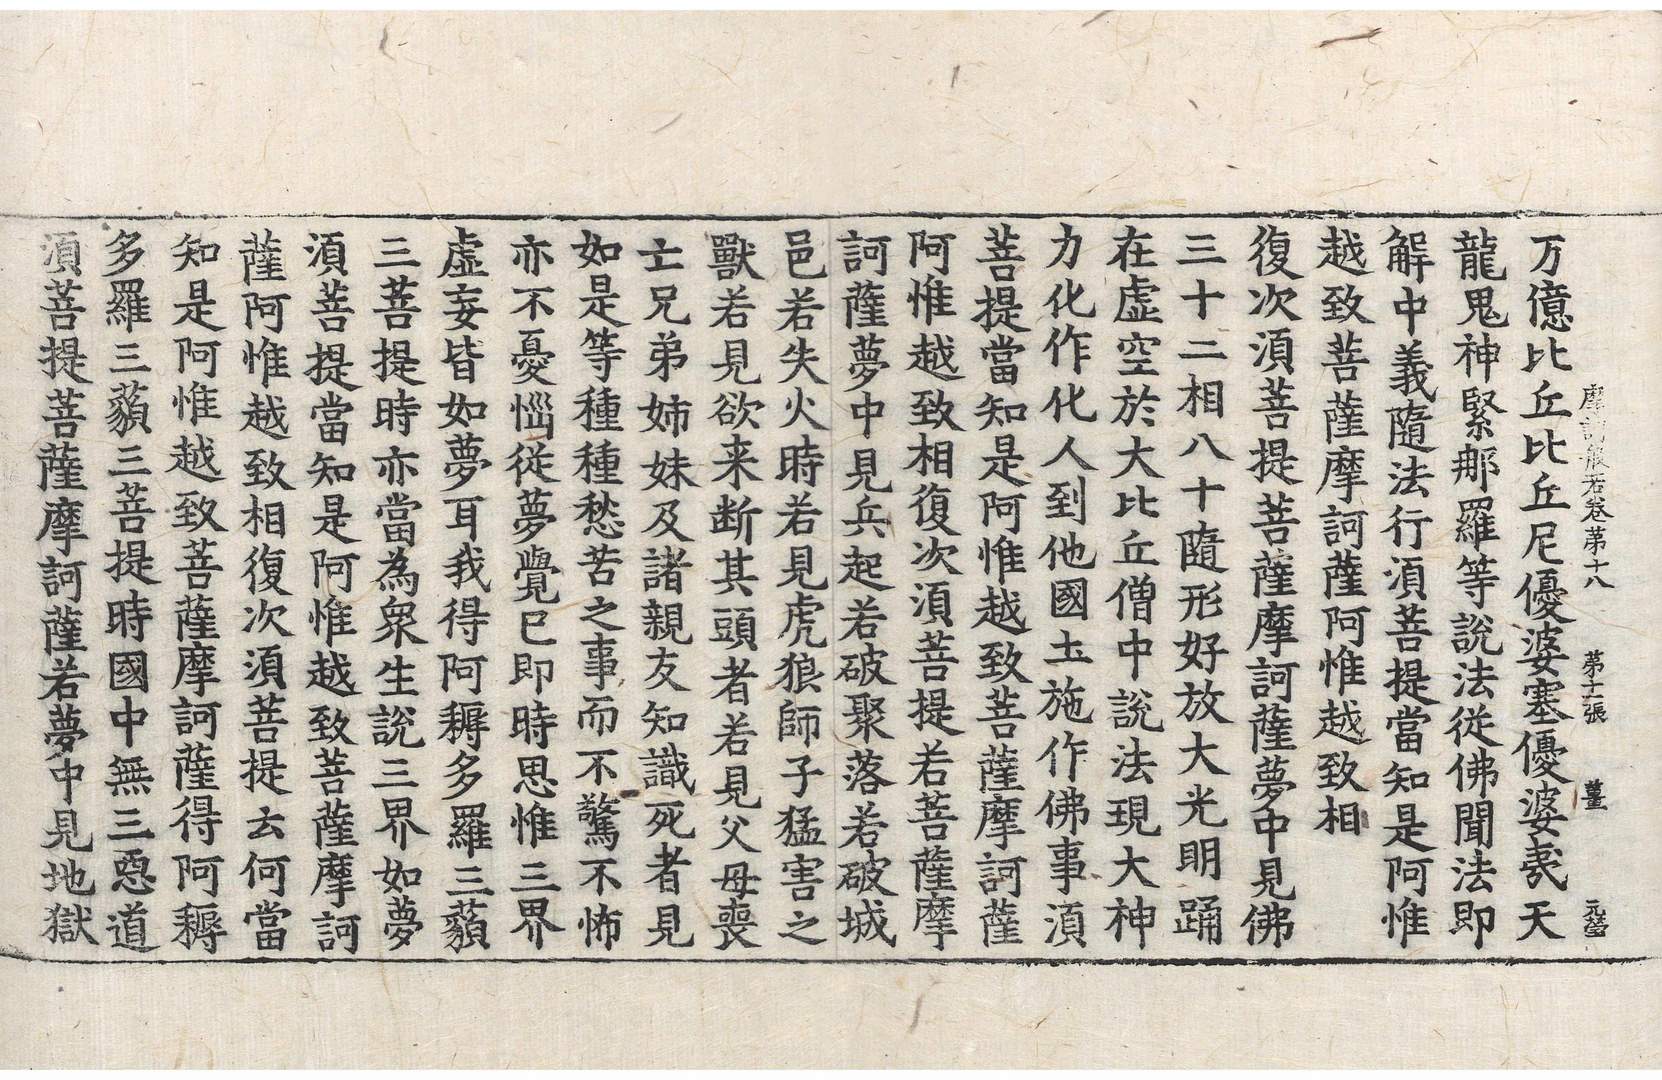 摩訶般若卷第十八 第十二張 薑 元瑩
万億比丘比丘尼優婆塞優婆夷天
龍鬼神緊那羅等說法從佛聞法即
解中義隨法行須菩提當知是阿惟
越致菩薩摩訶薩阿惟越致相
復次須菩提菩薩摩訶薩夢中見佛
三十二相八十隨形好放大光明踊
在虛空於大比丘僧中說法現大神
力化作化人到他國土施作佛事須
菩提當知是阿惟越致菩薩摩訶薩
阿惟越致相復次須菩提若菩薩摩
訶薩夢中見兵起若破聚落若破城
邑若失火時若見虎狼師子猛害之
獸若見欲来断其頭者若見父母喪
亡兄弟姉妹及諸親友知識死者見
如是等種種愁苦之事而不驚不怖
亦不憂惱從夢覺已即時思惟三界
虛妄皆如夢耳我得阿耨多羅三藐
三菩提時亦當為衆生說三界如夢
須菩提當知是阿惟越致菩薩摩訶
薩阿惟越致相復次須菩提云何當
知是阿惟越致菩薩摩訶薩得阿耨
多羅三藐三菩提時國中無三惡道
須菩提菩薩摩訶薩若夢中見地獄